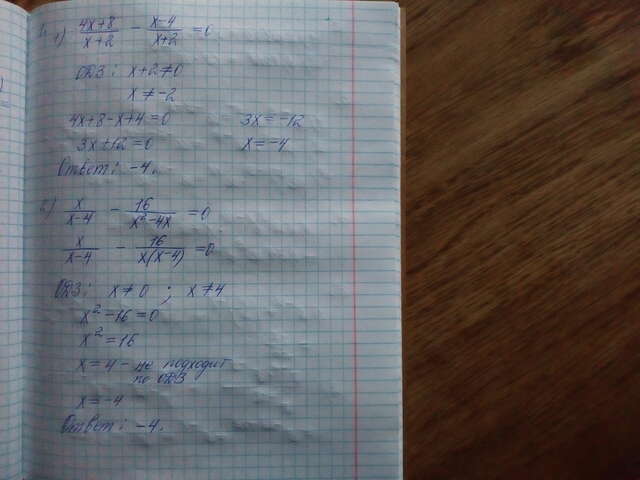 1) (4x+8)/(x+2) - (x-4)/(x+2) = 0
ОДЗ: x+2≠0
x≠-2
4x+8-x+4=0 3x=-12
3x+12=0 x=-4
Ответ: -4.
2) x/(x-4) - 16/(x²-4x) = 0
x/(x-4) - 16/(x(x-4)) = 0
ОДЗ: x≠0 ; x≠4
x²-16=0
x²=16
x=4 - не подходит
по ОДЗ
x=-4
Ответ: -4.